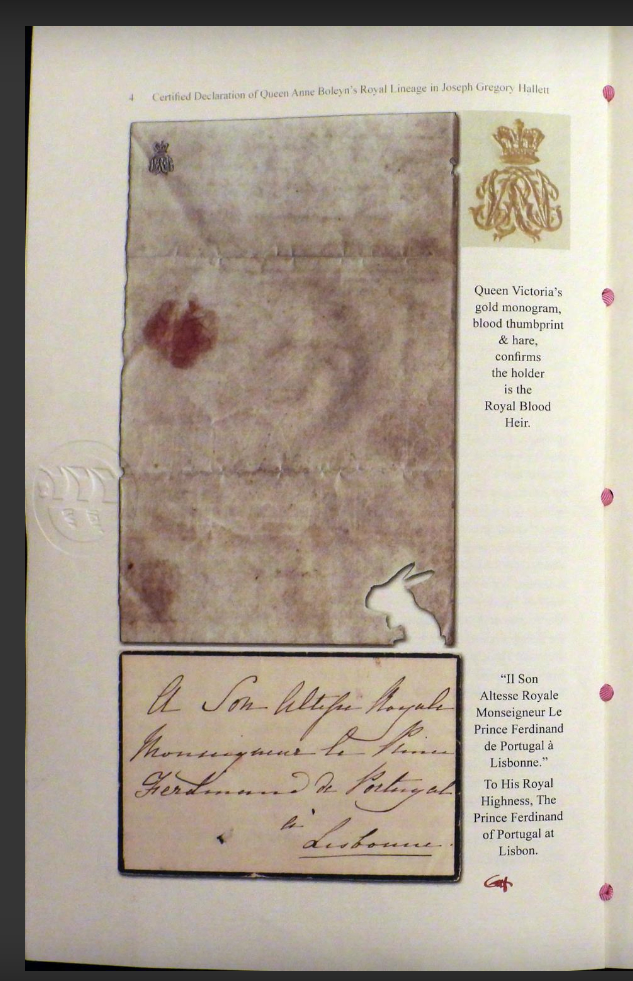 4 Certified Declaration of Queen Anne Boleyn's Royal Lineage in Joseph Gregory Hallett
Queen Victoria's
gold monogram,
blood thumbprint
& hare,
confirms
the holder
is the
Royal Blood
Heir.
A Son Altesse Royale
Monseigneur le Prince
Ferdinand de Portugal
à
Lisbonne.
"Il Son
Altesse Royale
Monseigneur Le
Prince Ferdinand
de Portugal à
Lisbonne."
To His Royal
Highness, The
Prince Ferdinand
of Portugal at
Lisbon.